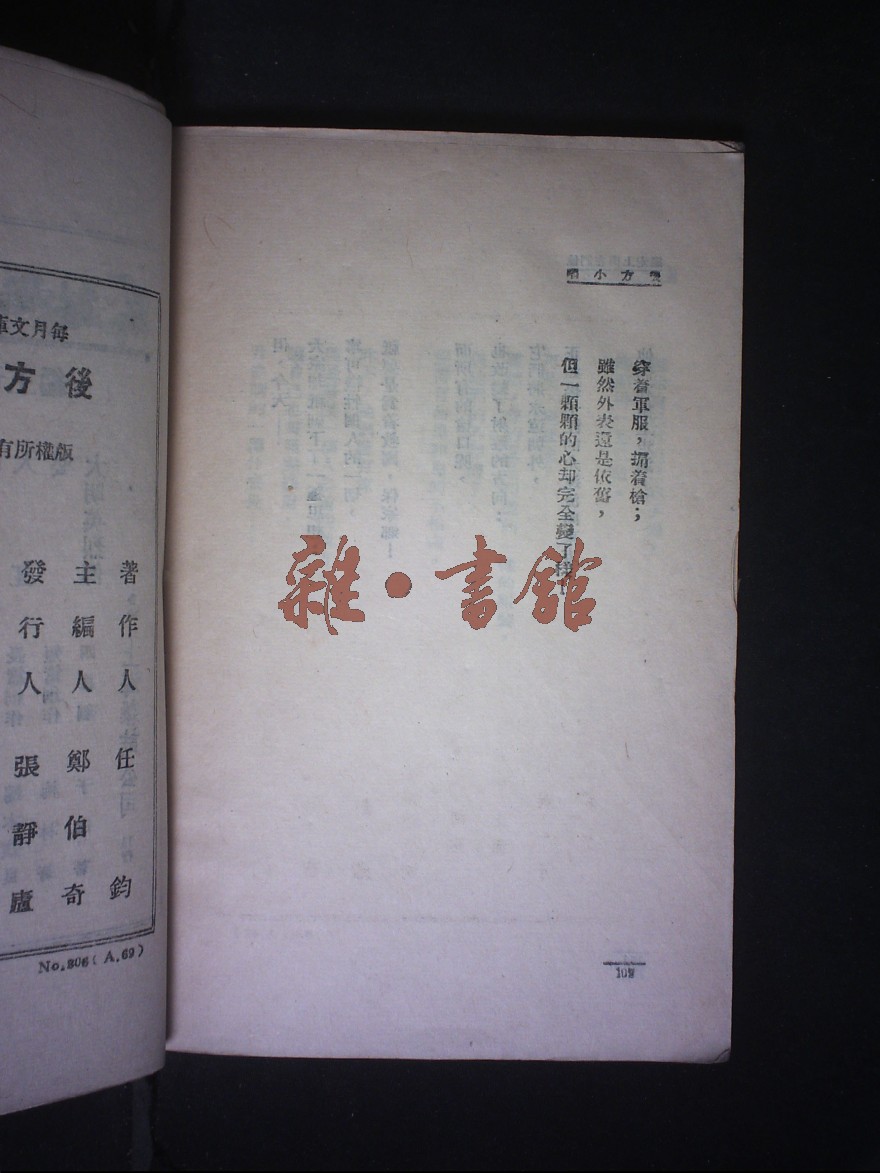 後方小唱
穿着軍服，掮着槍；
雖然外表還是依舊，
但一顆顆的心却完全變了
109
每月文庫
後方
版權所有
著作人 任鈞
主編人 鄭伯奇
發行人 張靜廬
No.806（A.69）
雜·書館